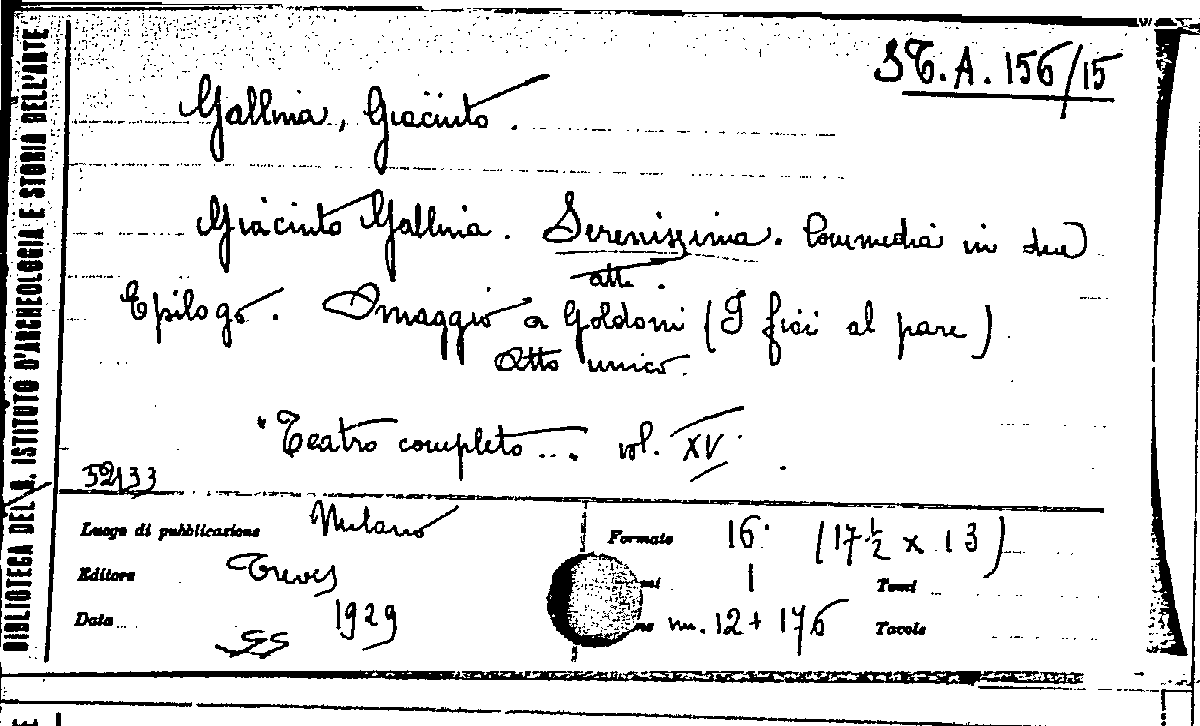 BIBLIOTECA DEL R. ISTITUTO D'ARCHEOLOGIA E STORIA DELL'ARTE
ST. A. 156/15
Gallina, Giacinto.
Giacinto Gallina. Serenissima. Commedia in due
atti.
Epilogo. Omaggio a Goldoni (I fioi al pare)
Atto unico.
"Teatro completo... vol. XV.
52133
Luogo di pubblicazione Milano Formato 16° (17½ x 13)
Editore Treves 1 Tomi
Data 1929 nu. 12 + 176 Tavole